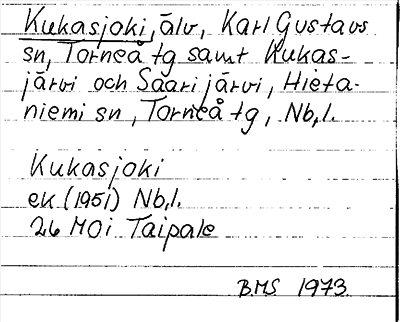 Kukasjoki, älv, Karl Gustavs
sn, Torneå tg samt Kukas-
järvi och Saarijärvi, Hieta-
niemi sn, Torneå tg, Nb,l.
Kukasjoki
ek (1951) Nb,l.
26 M0i Taipale
BMS 1973